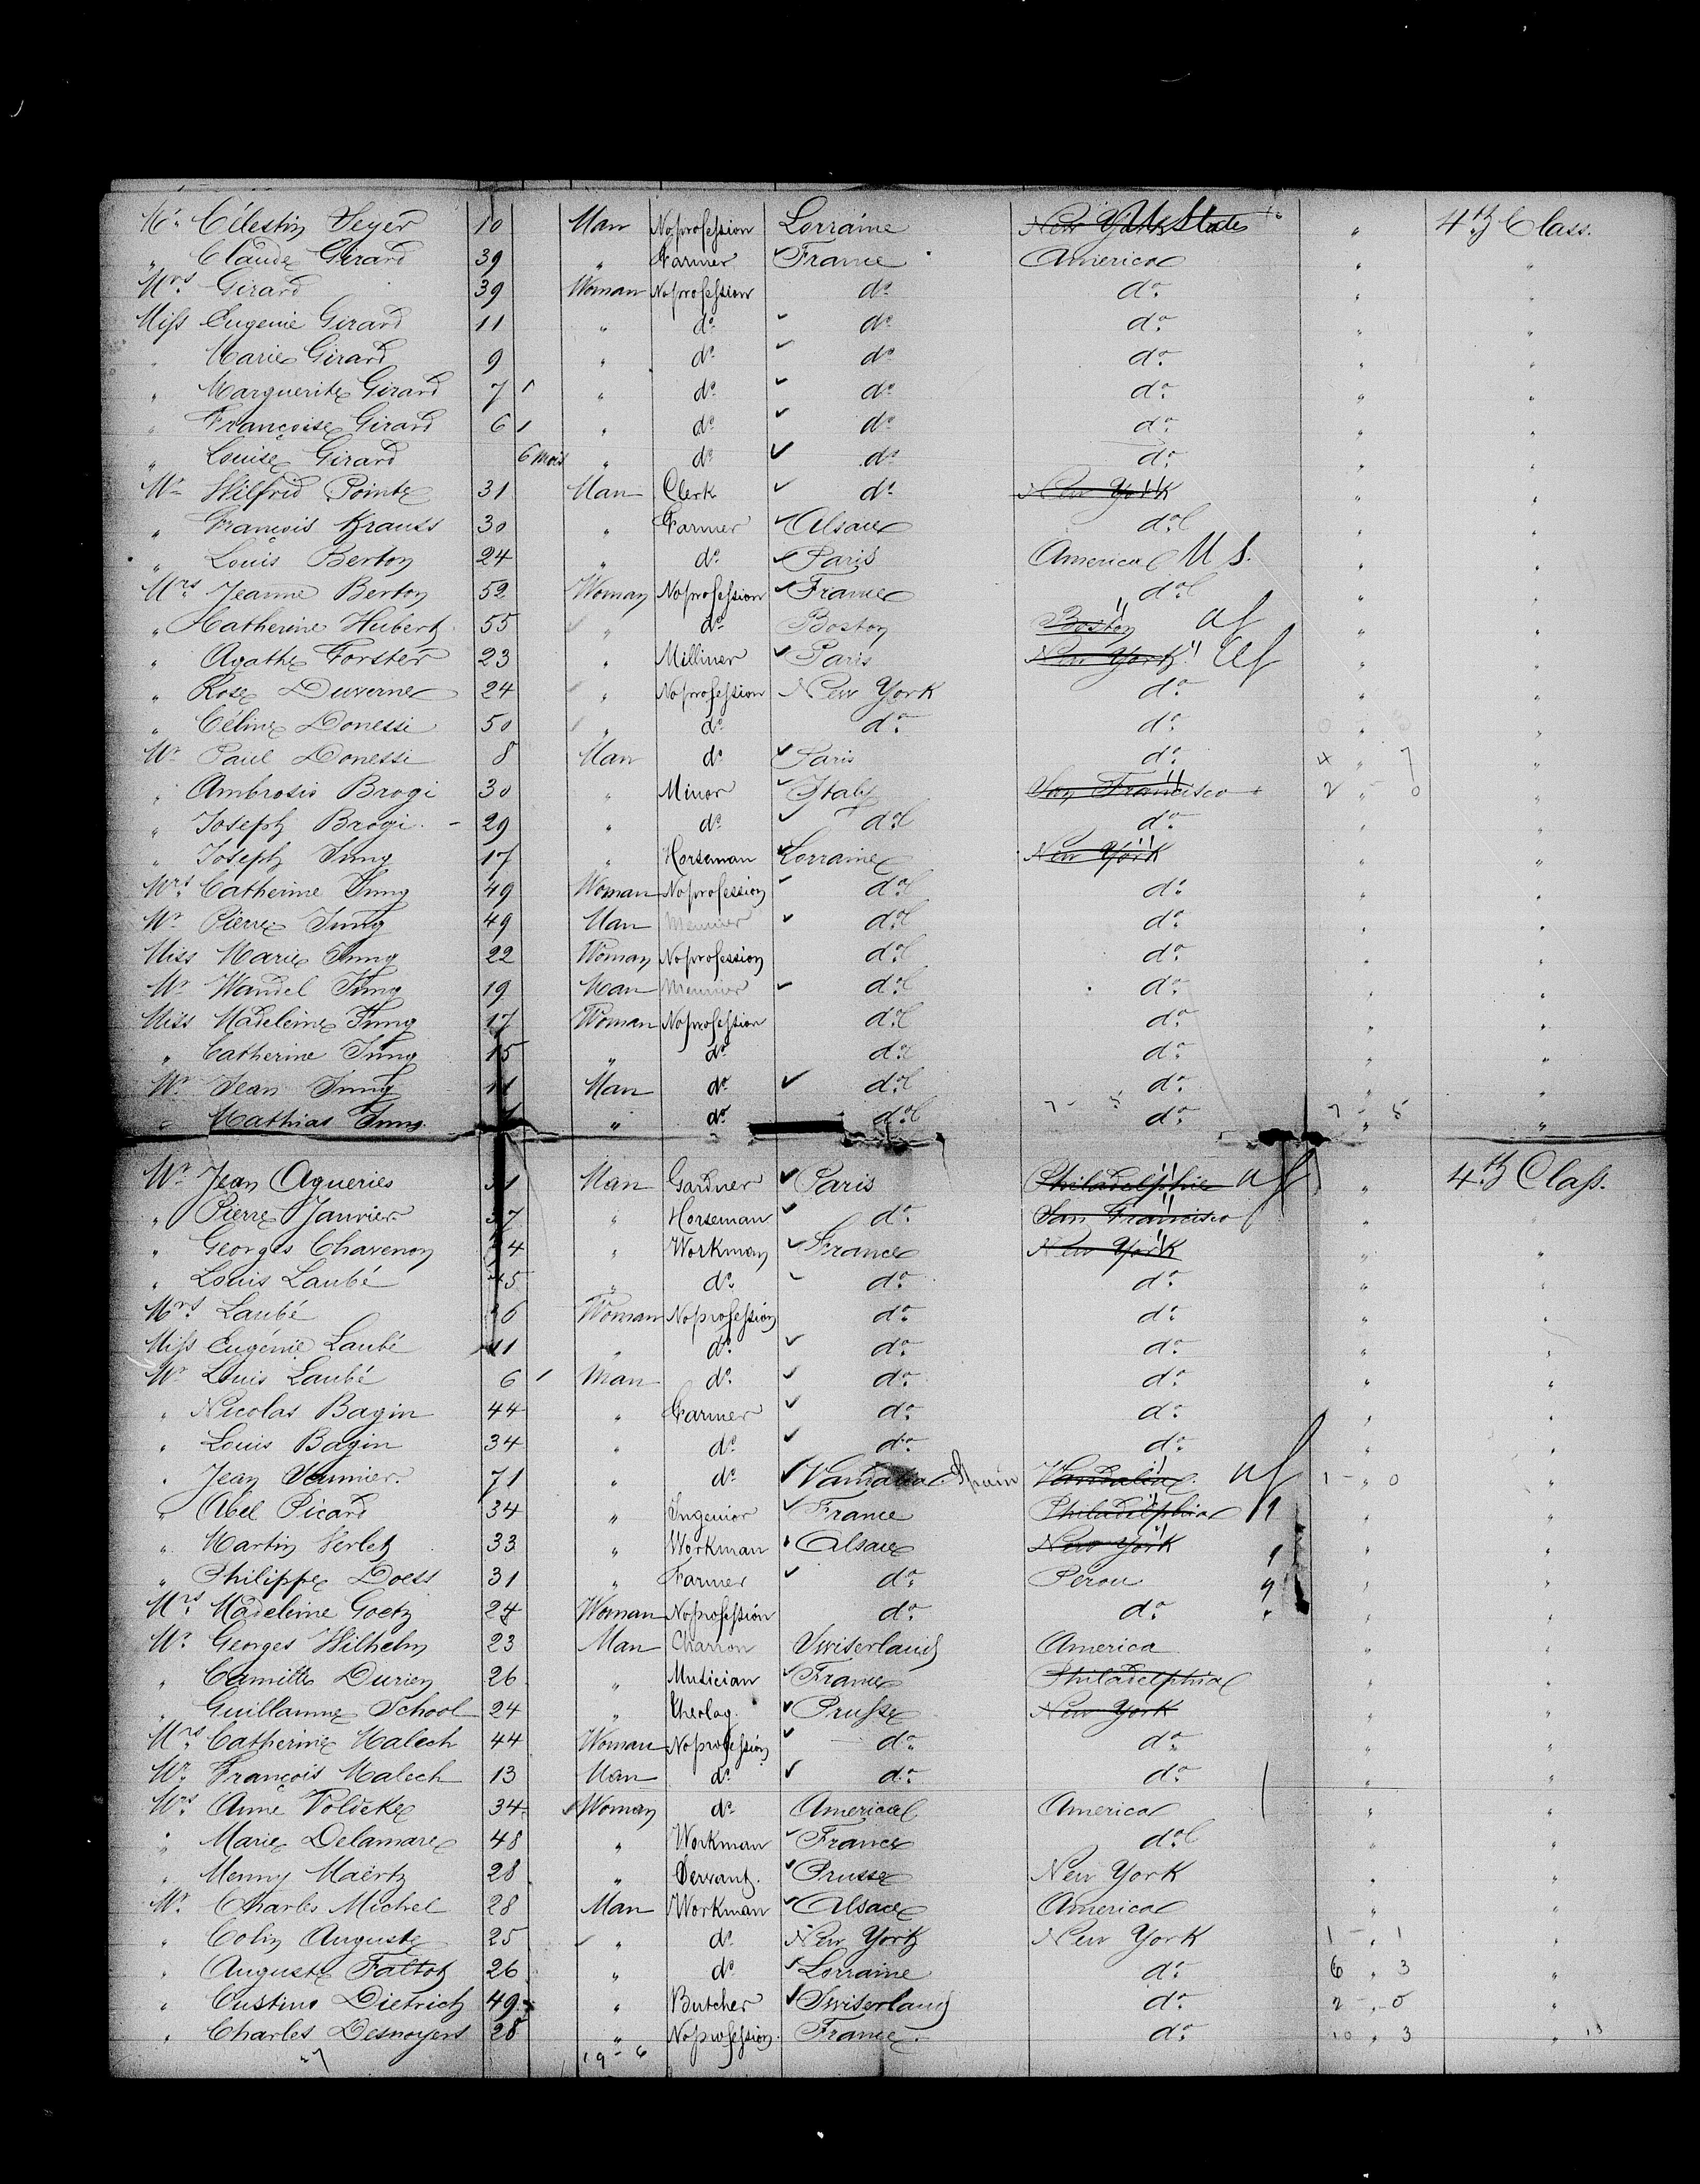 Mr Célestin Seyer 10 Man No profession Lorraine New York U. States " 4th Class.
" Claude Girard 39 " Farmer France America " "
Mrs Girard 39 Woman No profession do do " "
Miss Eugenie Girard 11 " do do do " "
" Marie Girard 9 " do do do " "
" Marguerite Girard 7 " do do do " "
" Françoise Girard 6 " do do do " "
" Louise Girard 6 mois " do do do " "
Mr Wilfrid Pointe 31 Man Clerk do New York " "
" François Krauss 30 " Farmer Alsace do " "
" Louis Berton 24 " do Paris America U S. " "
Mrs Jeanne Berton 52 Woman No profession France do " "
" Catherine Hubert 55 " do Boston Boston " "
" Agathe Forster 23 " Milliner Paris New York " "
" Rose Duverne 24 " No profession New York do " "
" Céline Donessi 50 " do do do " "
Mr Paul Donessi 8 Man do Paris do 4 " 7 "
" Ambrosio Brogi 30 " Minor Italy San Francisco 2 " 0 "
" Joseph Brogi 29 " do do do " "
" Joseph Jung 17 " Horseman Lorraine New York " "
Mrs Catherine Jung 49 Woman No profession do do " "
Mr Pierre Jung 49 Man Meunier do do " "
Miss Marie Jung 22 Woman No profession do do " "
Mr Wandel Jung 19 Man Meunier do do " "
Miss Madeleine Jung 17 Woman No profession do do " "
" Catherine Jung 15 " do do do " "
Mr Jean Jung 11 Man do do do " "
" Mathias Jung " do do 7 - 5 do 7 - 5 "
Mr Jean Agueries 31 Man Gardner Paris Philadelphie " 4th Class.
" Pierre Janvier 37 " Horseman do San Francisco " "
" Georges Chavenon 44 " Workman France New York " "
" Louis Laubé 45 " do do do " "
Mrs Laubé 36 Woman No profession do do " "
Miss Eugénie Laubé 11 " do do do " "
Mr Louis Laubé 6 Man do do do " "
" Nicolas Bagin 44 " Farmer do do " "
" Louis Bagin 34 " do do do " "
" Jean 71 " do Spain 1 - 0 "
" Abel Picard 34 " Ingenior France Philadelphia " "
" Martin Verlet 33 " Workman Alsace New York " "
" Philippe Doess 31 " Farmer do Perou " "
Mrs Madeleine Goetz 24 Woman No profession do do " "
Mr Georges Wilhelm 23 Man Charron Switserland America " "
" Camille Durien 26 " Musician France Philadelphia " "
" Guillaume School 24 " theolog. Prusse New York " "
Mrs Catherine Malech 44 Woman No profession do do " "
Mr François Malech 13 Man do do do " "
Mrs Anne Poldeke 34 Woman do America America " "
" Marie Delamare 48 " Workman France do " "
" Menny Maertz 28 " Servant. Prusse New York " "
Mr Charles Michel 28 Man Workman Alsace America " "
" Colin Auguste 25 " do New York New York 1 - 1 "
" Auguste Faltot 26 " do Lorraine do 6 " 3 "
" Custino Dietrich 49 " Butcher Switserland do 2 - 0 "
" Charles Desnoyers 28 " No profession. France do 10 " 3 " 13
19 - 6